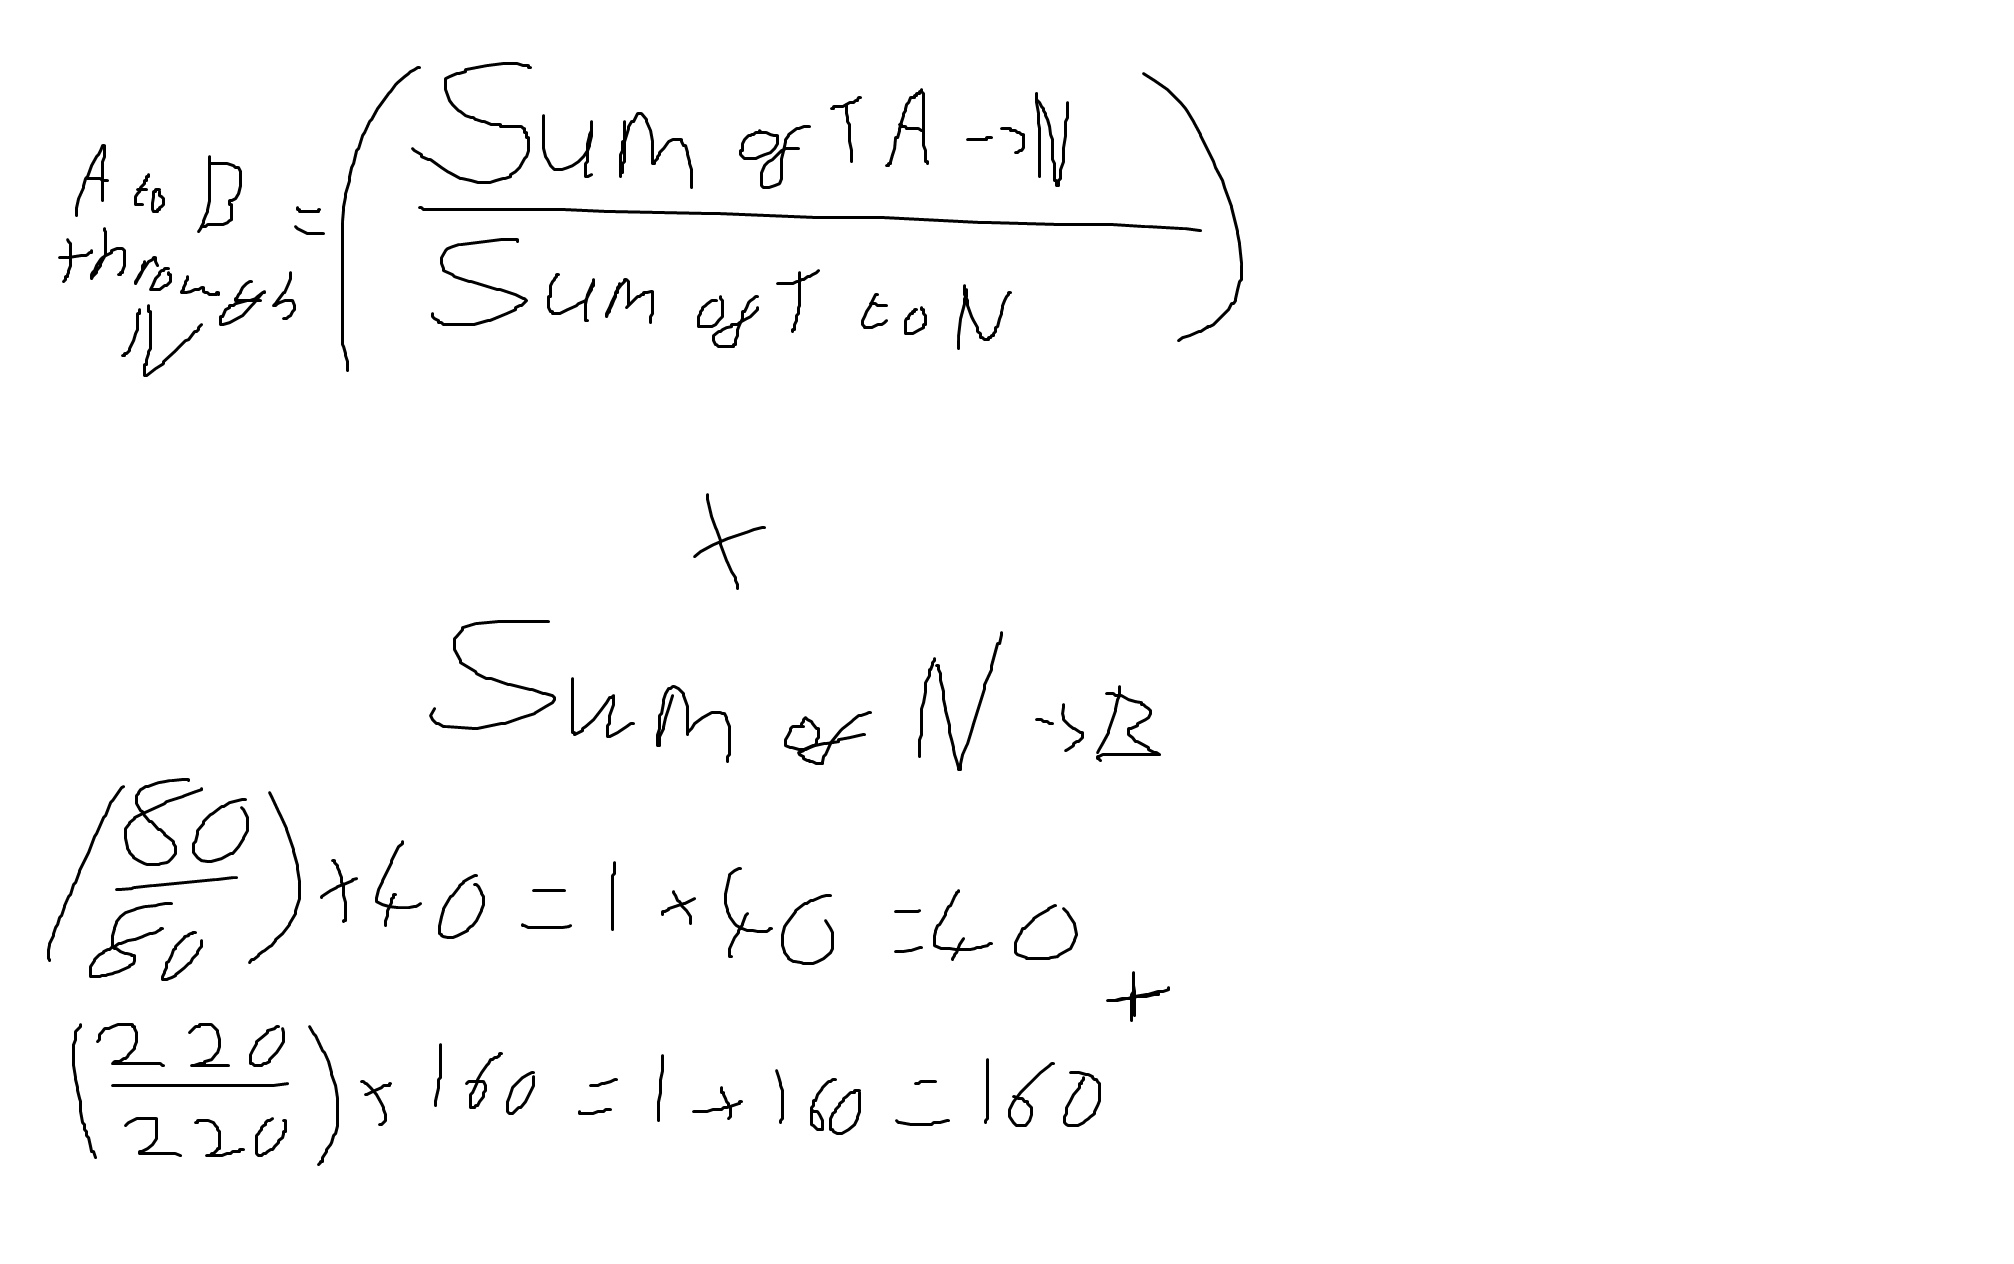 A to B through N = (Sum of T A -> N / Sum of T to N)
×
Sum of N -> B
(80/80) × 40 = 1 × 40 = 40
+
(220/220) × 160 = 1 × 160 = 160